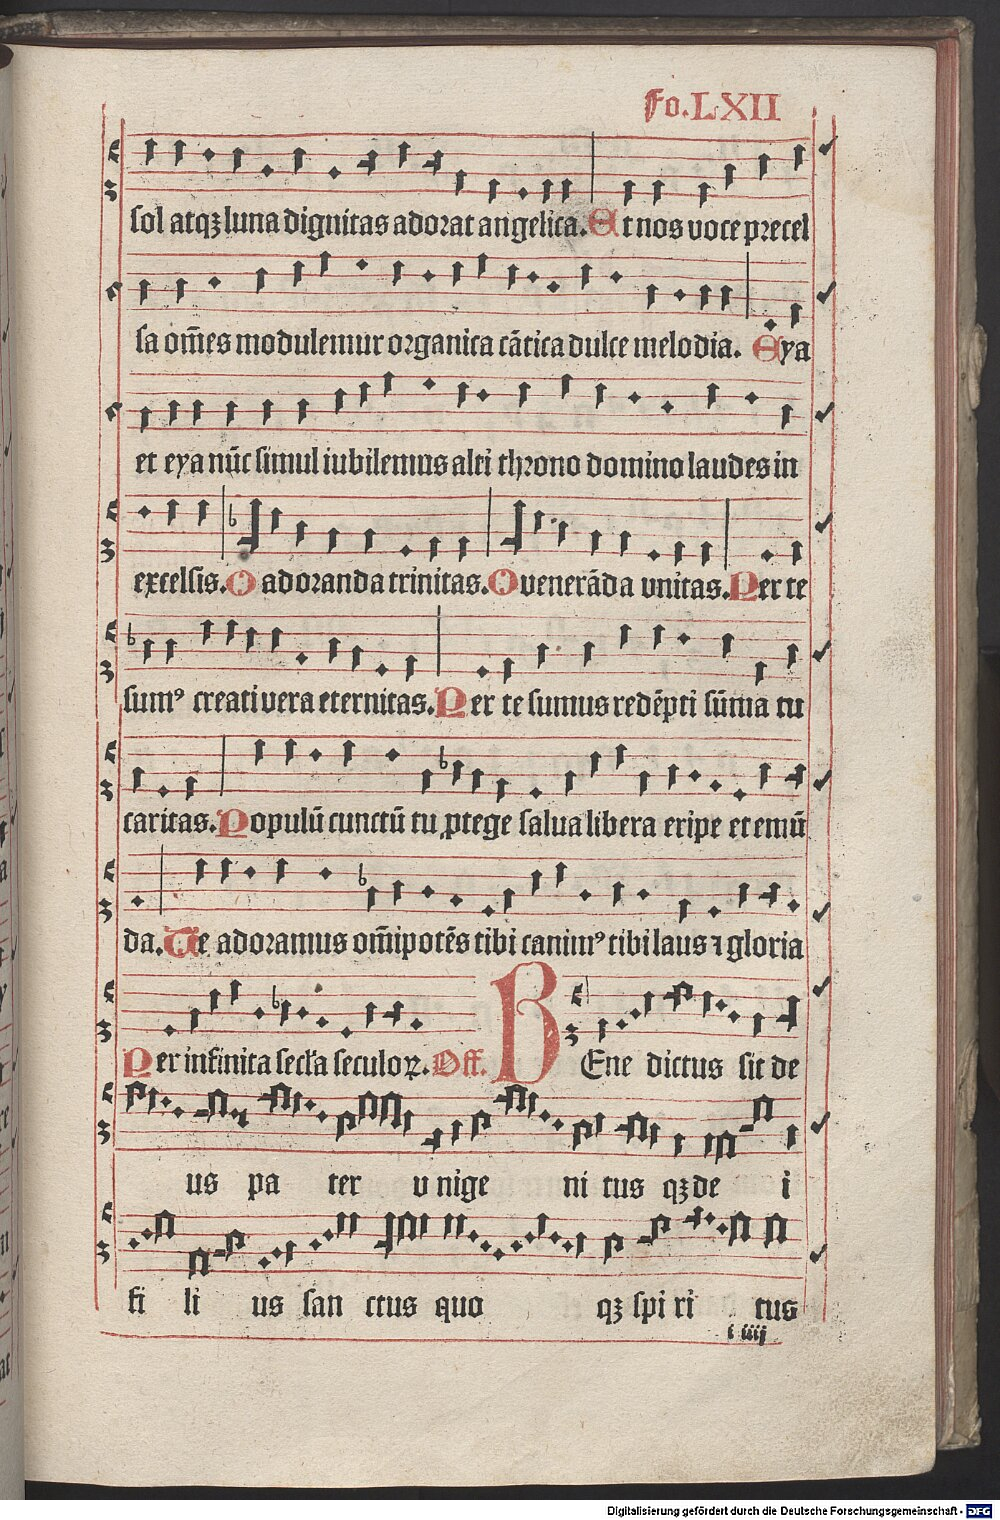 Fo.LXII
sol atqꝫ luna dignitas adorat angelica. Et nos voce precel
sa om̃es modulemur organica cãtica dulce melodia. Eya
et eya nũc simul iubilemus alti throno domino laudes in
excelsis. O adoranda trinitas. O venerãda vnitas. Per te
sumꝰ creati vera eternitas. Per te sumus redẽpti sũma tu
caritas. Populũ cunctũ tu ꝓtege salua libera eripe et emũ
da. Te adoramus om̃ipotẽs tibi canimꝰ tibi laus ⁊ gloria
Per infinita secła seculoꝝ. Off. BEne dictus sit de
us pa ter vnige ni tus qꝫ de i
fi li us san ctus quo qꝫ spi ri tus
i iiij
Digitalisierung gefördert durch die Deutsche Forschungsgemeinschaft - DFG